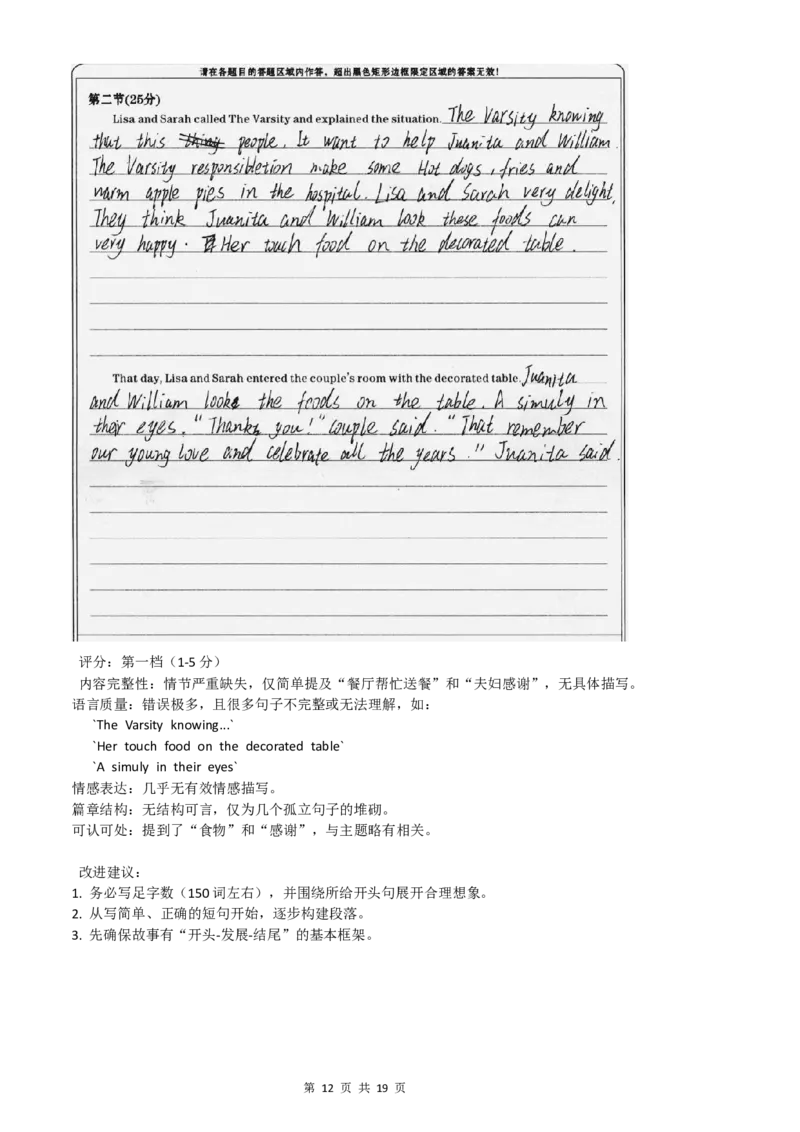 请在各题目的答题区域内作答，超出黑色矩形边框限定区域的答案无效！
第二节(25分)
Lisa and Sarah called The Varsity and explained the situation. The Varsity knowing
that this thing people. It want to help Juanita and William.
The Varsity responsibletion make some Hot dogs, fries and
warm apple pies in the hospital. Lisa and Sarah very delight.
They think Juanita and William look these foods can
very happy. Her touch food on the decorated table.
That day, Lisa and Sarah entered the couple's room with the decorated table. Juanita
and William looks the foods on the table. A simuly in
their eyes. "Thanks you!" couple said. "That remember
our young love and celebrate all the years." Juanita said.
评分：第一档（1-5 分）
内容完整性：情节严重缺失，仅简单提及“餐厅帮忙送餐”和“夫妇感谢”，无具体描写。
语言质量：错误极多，且很多句子不完整或无法理解，如：
`The Varsity knowing...`
`Her touch food on the decorated table`
`A simuly in their eyes`
情感表达：几乎无有效情感描写。
篇章结构：无结构可言，仅为几个孤立句子的堆砌。
可认可处：提到了“食物”和“感谢”，与主题略有相关。
改进建议：
1. 务必写足字数（150 词左右），并围绕所给开头句展开合理想象。
2. 从写简单、正确的短句开始，逐步构建段落。
3. 先确保故事有“开头-发展-结尾”的基本框架。
第 12 页 共 19 页